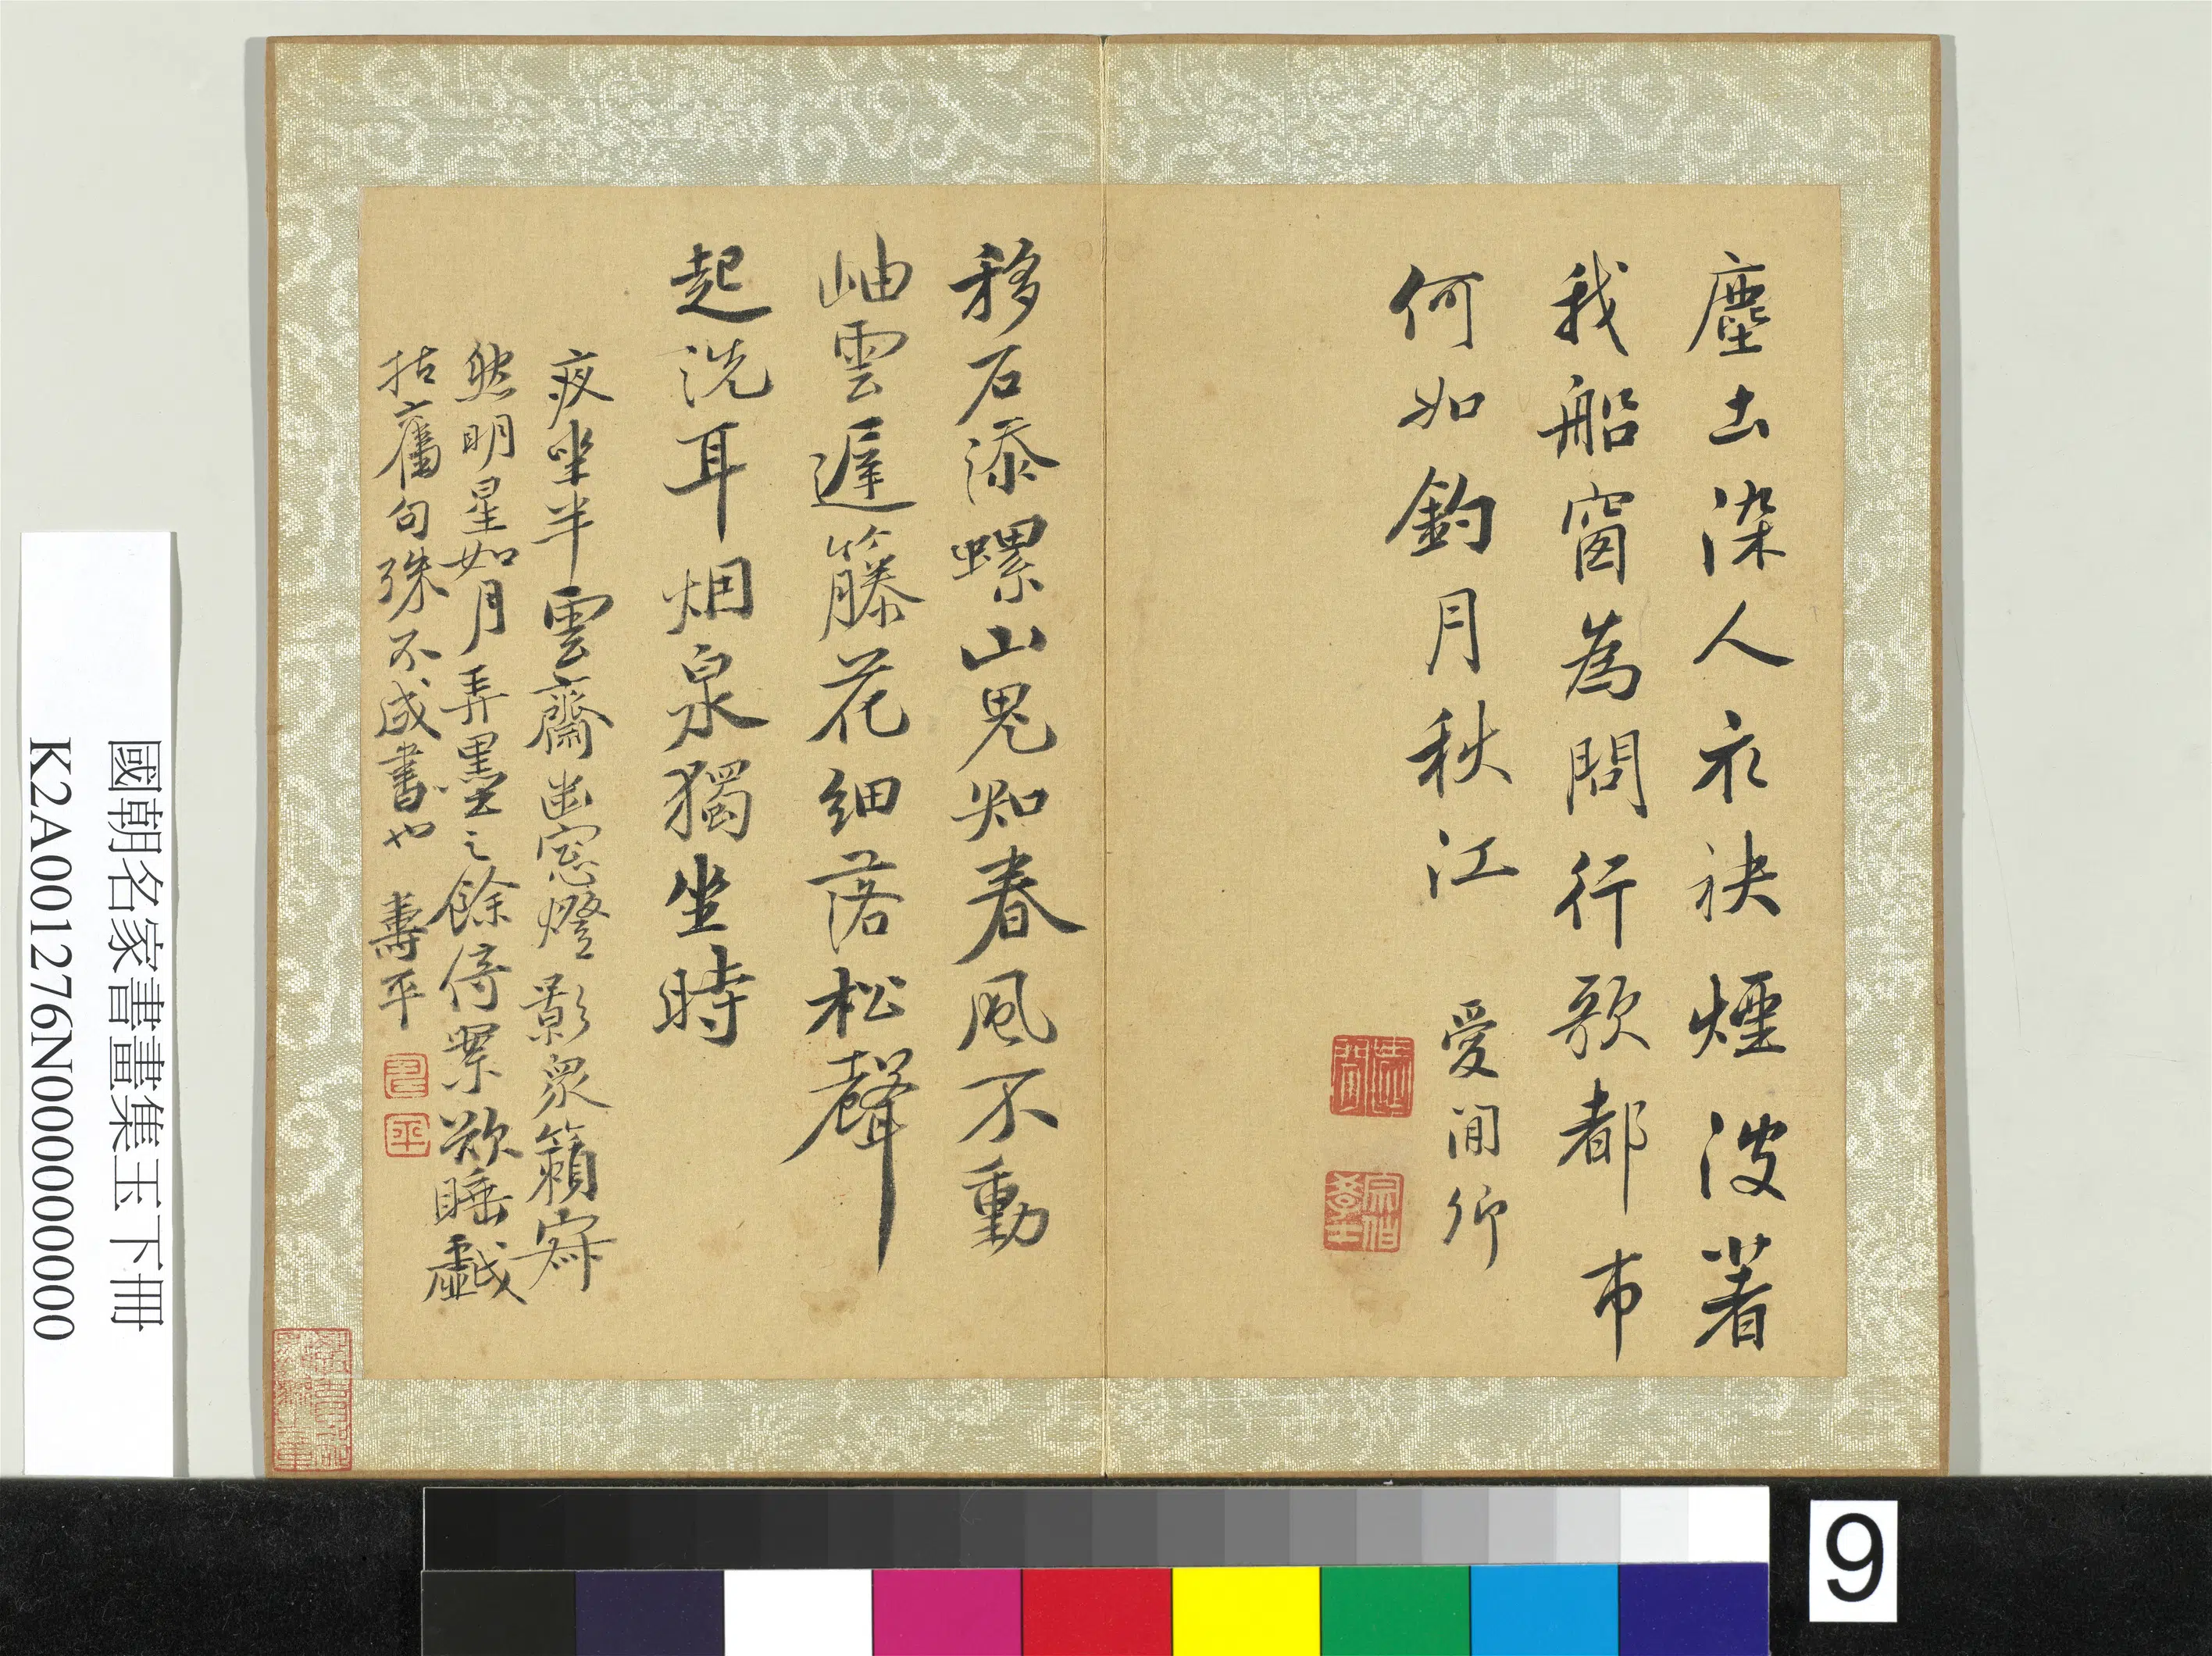 塵土染人衣袂煙波著
我船窗為問行歌都市
何如釣月秋江
愛閒作
移石添螺山鬼知春風不動
岫雲遲籐花細落松聲
起洗耳烟泉獨坐時
夜坐半雲齋幽窓燈影衆籟寂
然明星如月弄墨之餘倚案欲睡戲
拈舊句殊不成書也 壽平
壽
平
國朝名家書畫集玉下冊
K2A001276N000000000
9